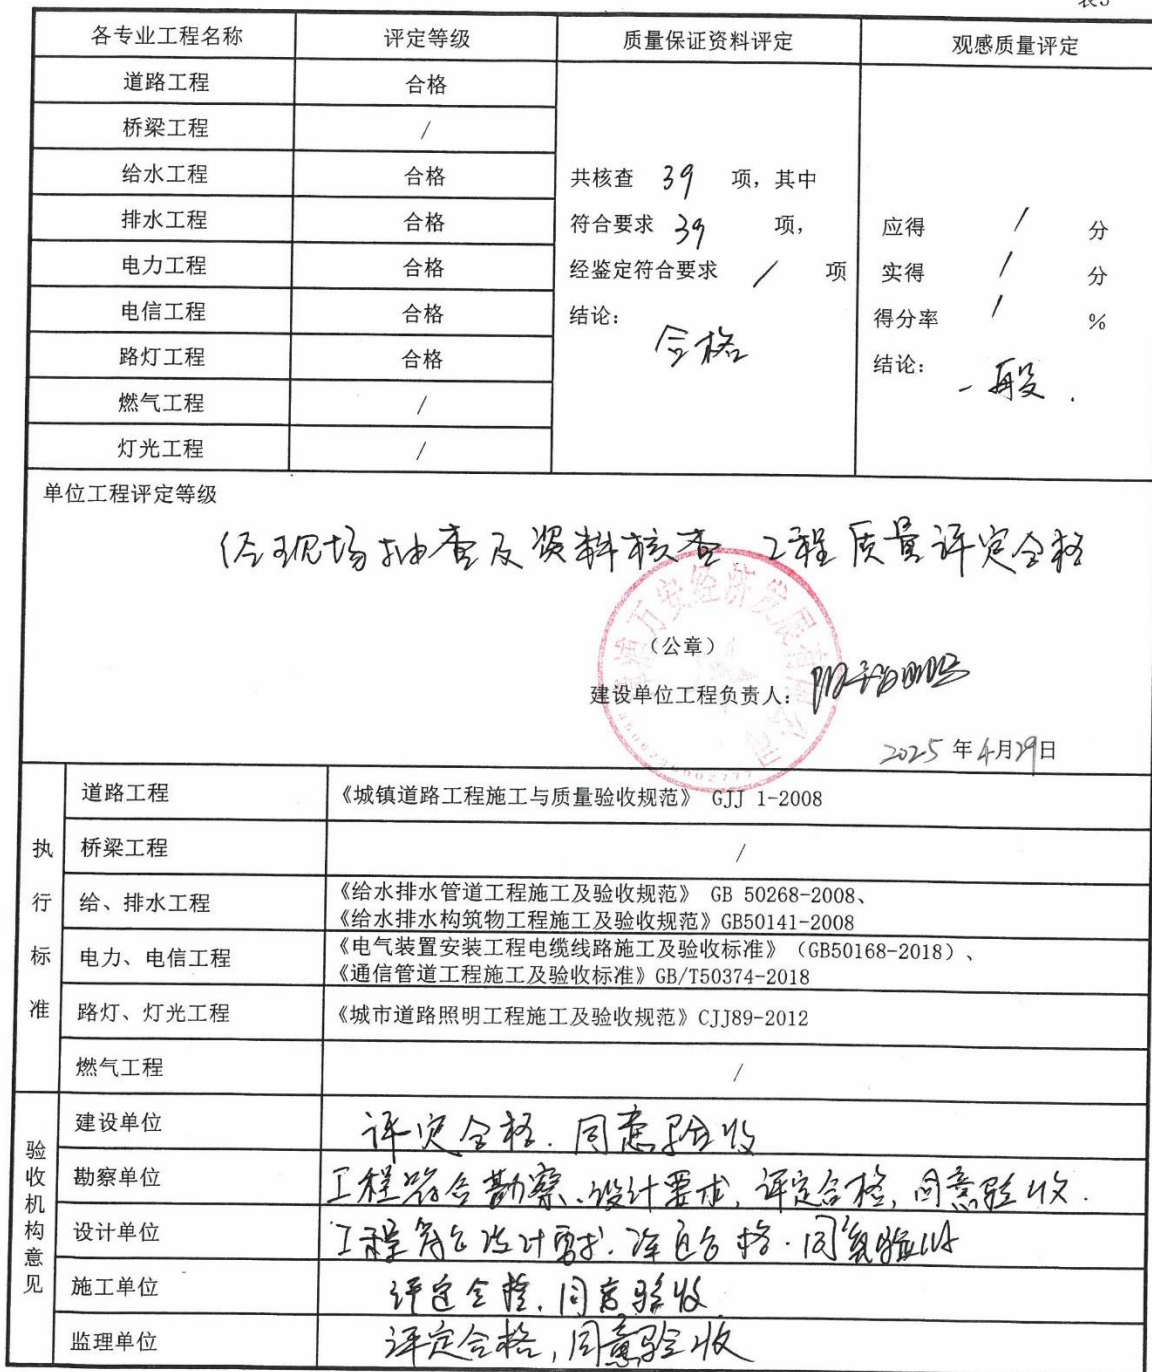 表3
各专业工程名称 评定等级 质量保证资料评定 观感质量评定
道路工程 合格
桥梁工程 /
给水工程 合格
排水工程 合格
电力工程 合格
电信工程 合格
路灯工程 合格
燃气工程 /
灯光工程 /
共核查 39 项，其中
符合要求 39 项，
经鉴定符合要求 / 项
结论：
合格
应得 / 分
实得 / 分
得分率 / %
结论：
一般.
单位工程评定等级
经现场抽查及资料核查 工程质量评定合格
万安经济发展有限公司
（公章）
建设单位工程负责人：
2025 年 4月29日
执行标准
道路工程 《城镇道路工程施工与质量验收规范》 GJJ 1-2008
桥梁工程 /
给、排水工程 《给水排水管道工程施工及验收规范》 GB 50268-2008、
《给水排水构筑物工程施工及验收规范》GB50141-2008
电力、电信工程 《电气装置安装工程电缆线路施工及验收标准》（GB50168-2018）、
《通信管道工程施工及验收标准》GB/T50374-2018
路灯、灯光工程 《城市道路照明工程施工及验收规范》CJJ89-2012
燃气工程 /
验收机构意见
建设单位 评定合格.同意验收
勘察单位 工程符合勘察、设计要求,评定合格,同意验收.
设计单位 工程符合设计要求.评定合格.同意验收
施工单位 评定合格,同意验收
监理单位 评定合格,同意验收